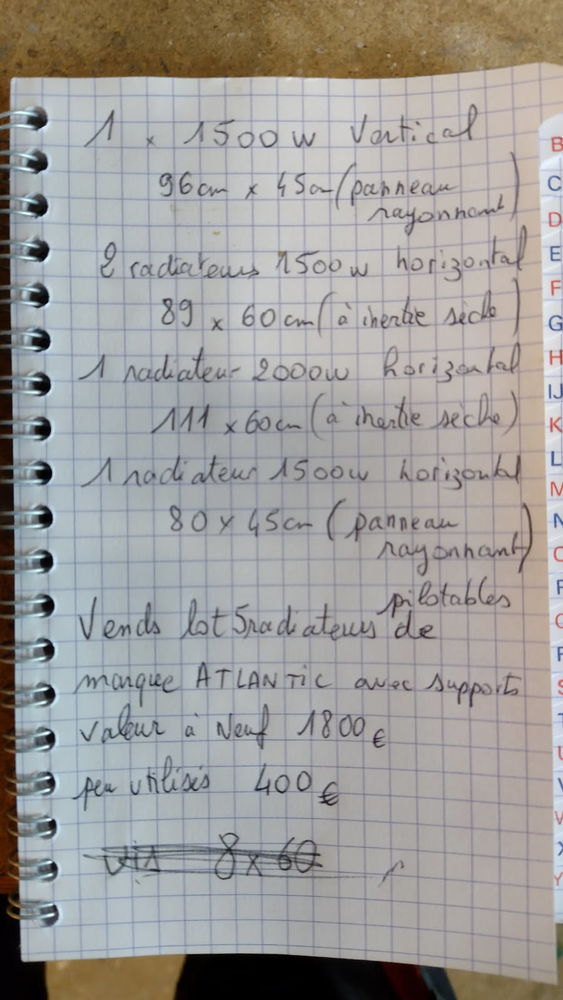 1 x 1500w Vertical
96cm x 45cm (panneau
rayonnant)
2 radiateurs 1500w horizontal
89 x 60cm (à inertie sèche)
1 radiateur 2000w horizontal
111 x 60cm (à inertie sèche)
1 radiateur 1500w horizontal
80 x 45cm (panneau
rayonnant)
pilotables
Vends lot 5 radiateurs de
marque ATLANTIC avec supports
Valeur à Neuf 1800€
peu utilisés 400€
vis 8x60
B
C
D
E
F
G
H
IJ
K
L
M
N
O
P
Q
R
S
T
U
V
W
X
Y